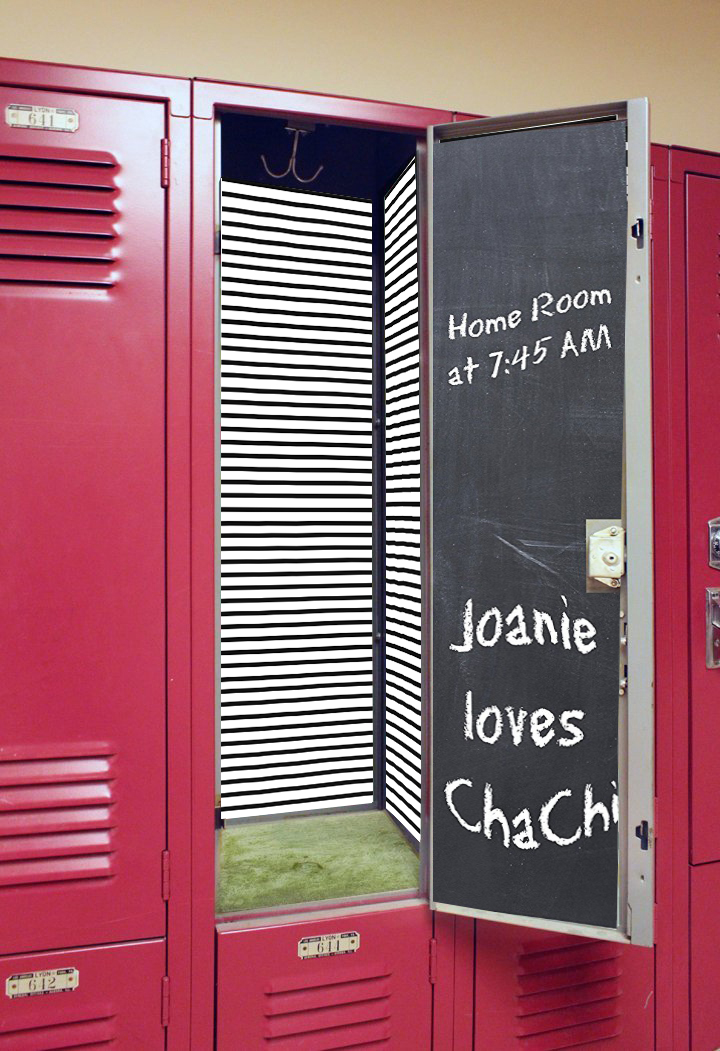 LYON
641
Home Room
at 7:45 AM
Joanie
loves
ChaChi
LYON
LYON
642